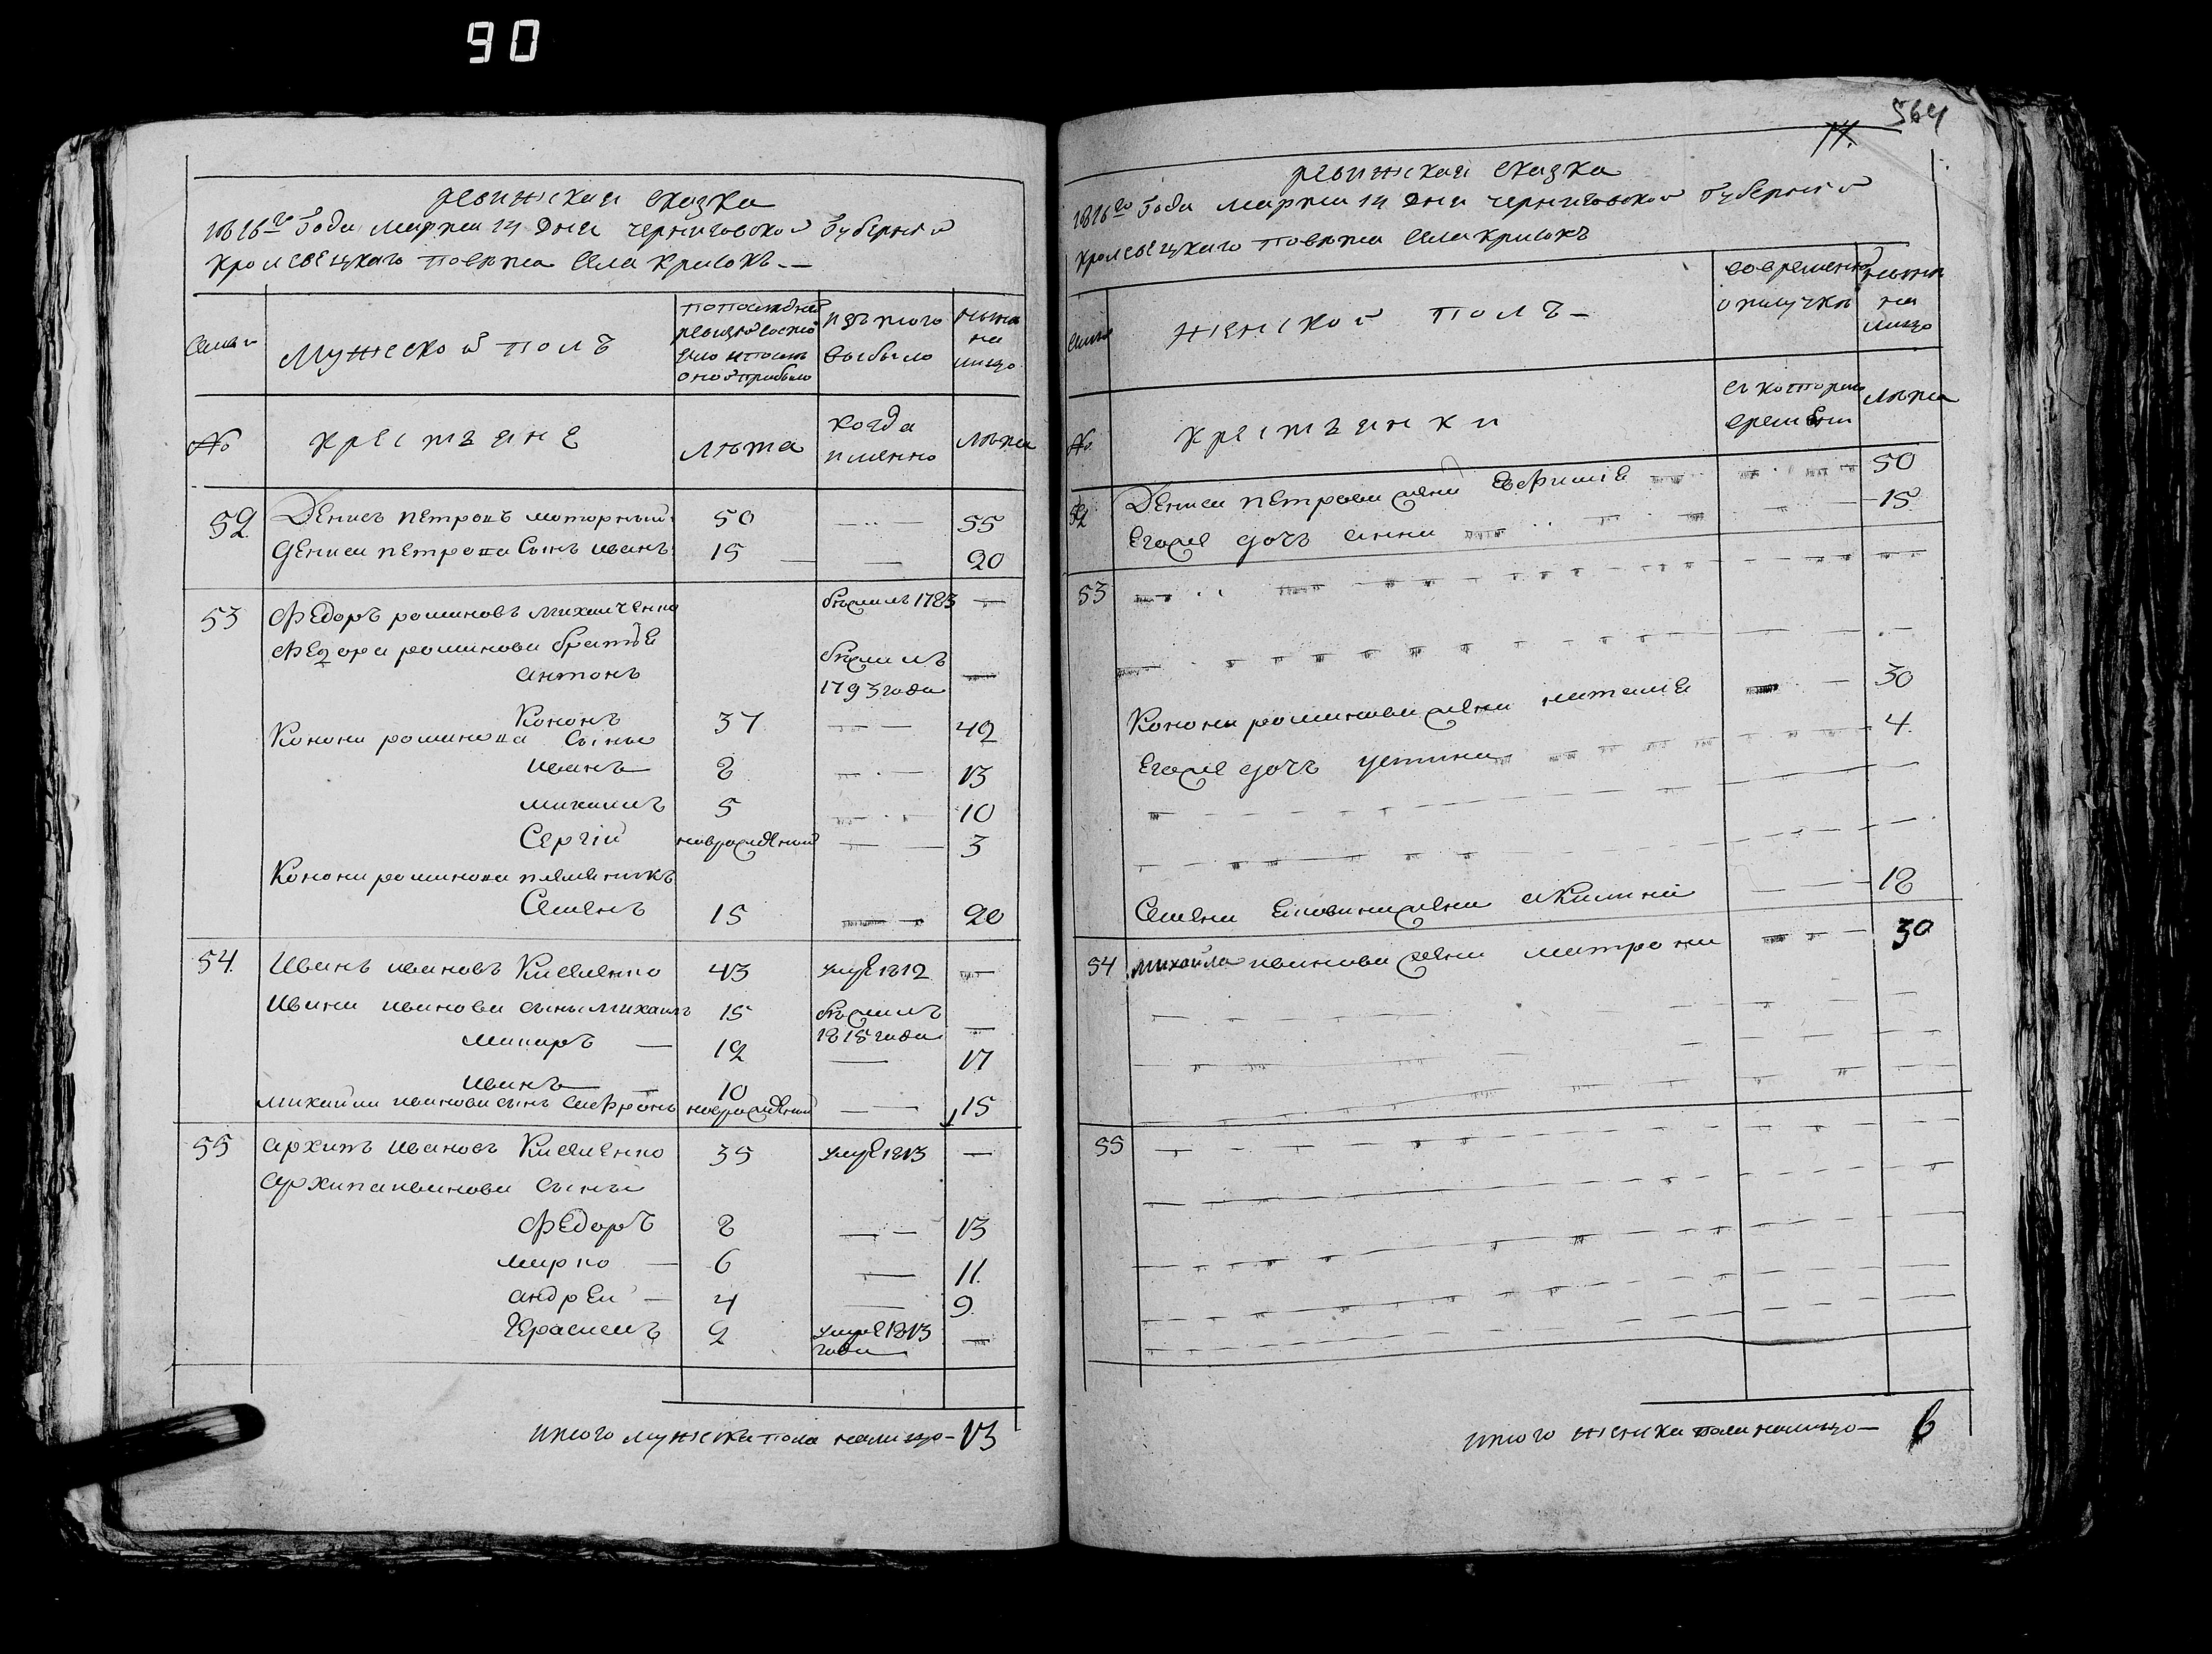 90
ревижская сказка
1816го Года марта 14 дня черниговской Губернии
кролевецкаго повета села крисокъ
семьи
Мужеской полъ
по последней
ревизіи состо
яло и после
оной прибыло
изъ того
выбыло
ныне
на
лицо
№
крестьяне
лета
когда
именно
лета
52
Денисъ петровъ моторный
50
55
Дениса петрова сынъ иванъ
15
20
53
Федоръ романовъ михайченко
бежалъ 1783
Федора романова братіе
антонъ
бежалъ
1793 года
Кононъ
37
42
Конона романова сыны
иванъ
8
13
михаилъ
5
10
Сергій
новрожденный
3
Конона романова племеникъ
Семенъ
15
20
54
Иванъ ивановъ Киселенко
43
умре 1812
Ивана иванова сыны михаилъ
15
бежалъ
1815 года
макаръ
12
17
иванъ
10
михайла иванова сынъ сафронъ
новрожденный
15
55
архипъ ивановъ Киселенко
35
умре 1813
архипа иванова сыны
Федоръ
8
13
марко
6
11
андрей
4
9
Герасимъ
2
умре 1813
года
итого мужеска пола налицо 13
564
ревижская сказка
1816го Года марта 14 дня черниговской Губерний
кролевецкаго повета села крисокъ
семьи
женской полъ
во временной
отлучке
ныне
на
лицо
№
крестьянки
съ котораго
времени
лета
52
Дениса петрова жена
50
Его же дочъ анна
15
53
Конона романова жена наталія
30
Его же дочъ устина
4
Семена жена акилина
18
54
михайла иванова жена матрона
30
55
итого женска пола налицо 6